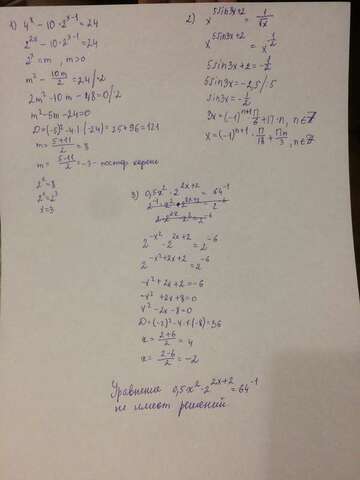 1) 4^x - 10 · 2^{x-1} = 24
2^{2x} - 10 · 2^{x-1} = 24
2^x = m, m > 0
m² - 10m/2 = 24 / · 2
2m² - 10m - 48 = 0 / : 2
m² - 5m - 24 = 0
D = (-5)² - 4 · 1 · (-24) = 25 + 96 = 121
m = (5+11)/2 = 8
m = (5-11)/2 = -3 -
2^x = 8
2^x = 2^3
x = 3
2) x^{5sin3x+2} = 1/√x
x^{5sin3x+2} = x^{-1/2}
5sin3x + 2 = -1/2
5sin3x = -2,5 / : 5
sin3x = -1/2
3x = (-1)^{n+1} π/6 + π · n, n ∈ Z
x = (-1)^{n+1} · π/18 + πn/3, n ∈ Z
3) 0,5x² · 2^{2x+2} = 64^{-1}
2^{-x²} · 2^{2x+2} = 2^{-6}
2^{-x²+2x+2} = 2^{-6}
-x² + 2x + 2 = -6
-x² + 2x + 8 = 0
x² - 2x - 8 = 0
D = (-2)² - 4 · 1 · (-8) = 36
x = (2+6)/2 = 4
x = (2-6)/2 = -2
Уравнение 0,5x² · 2^{2x+2} = 64^{-1}
не имеют решений